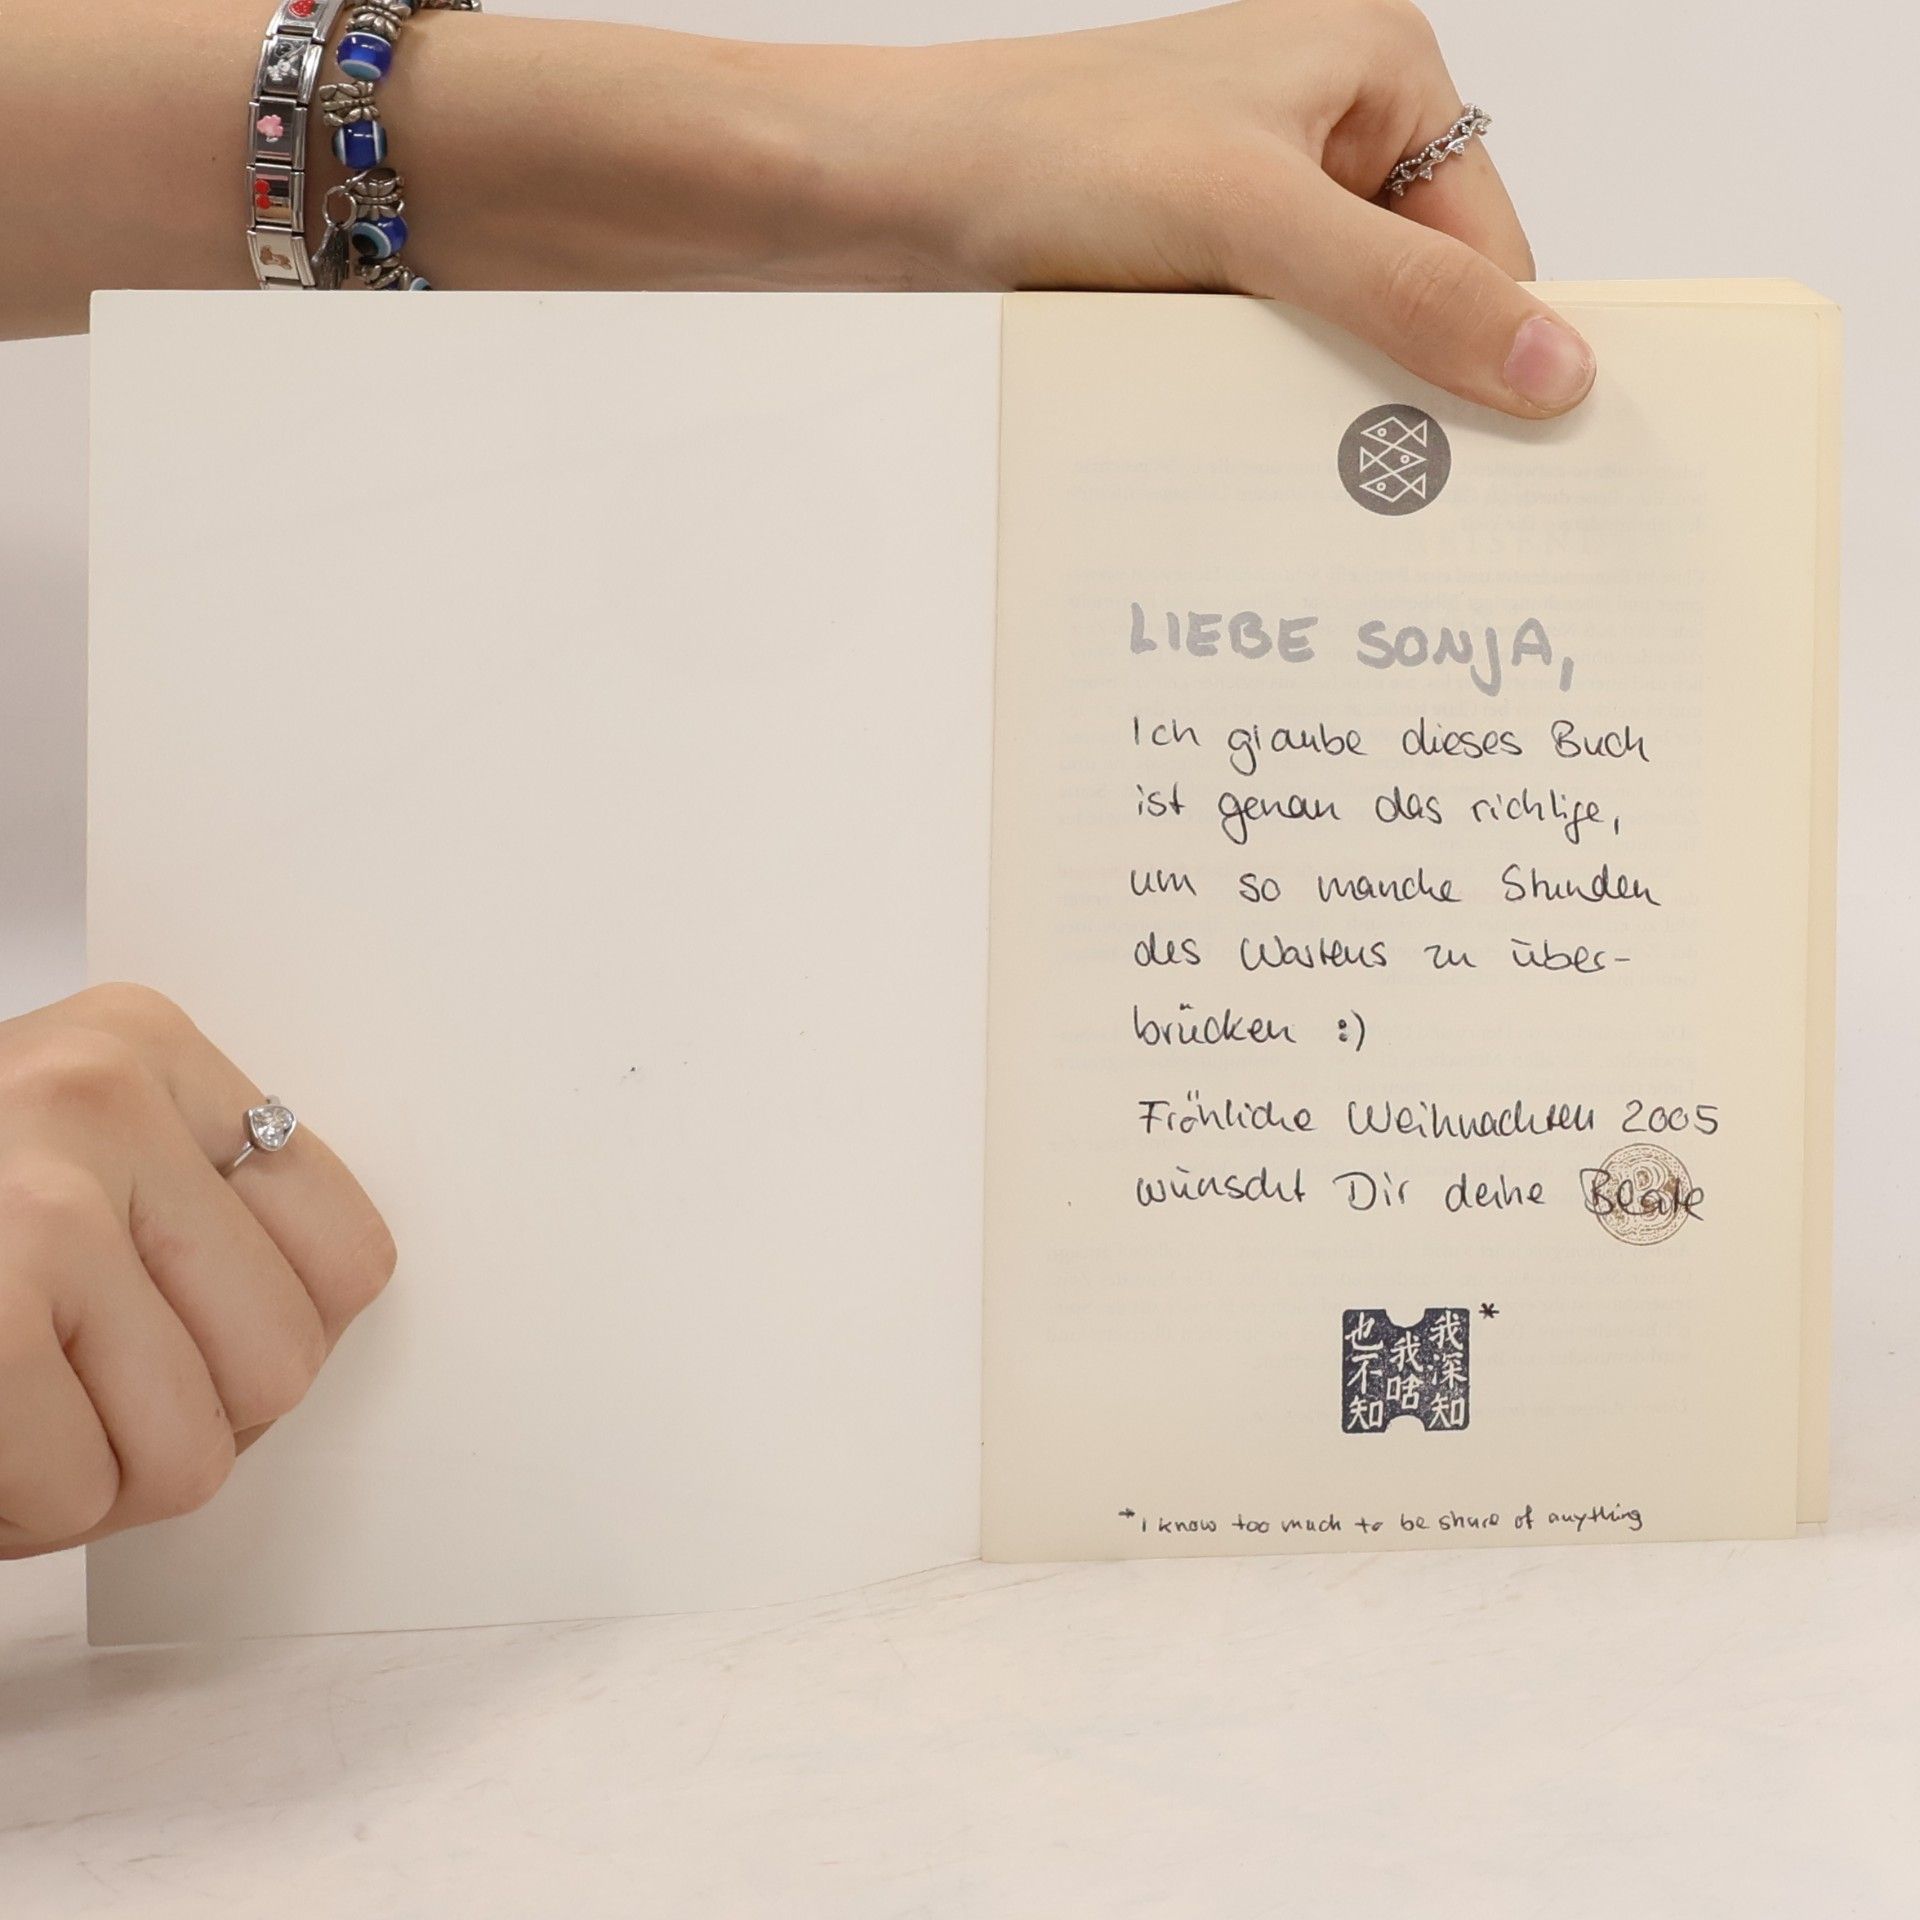 LIEBE SONJA,
Ich glaube dieses Buch
ist genau das richtige,
um so manche Stunden
des Wartens zu über-
brücken :)
Fröhliche Weihnachten 2005
wünscht Dir deine Beate
我深知
我啥
也不知
*
*I know too much to be shure of anything